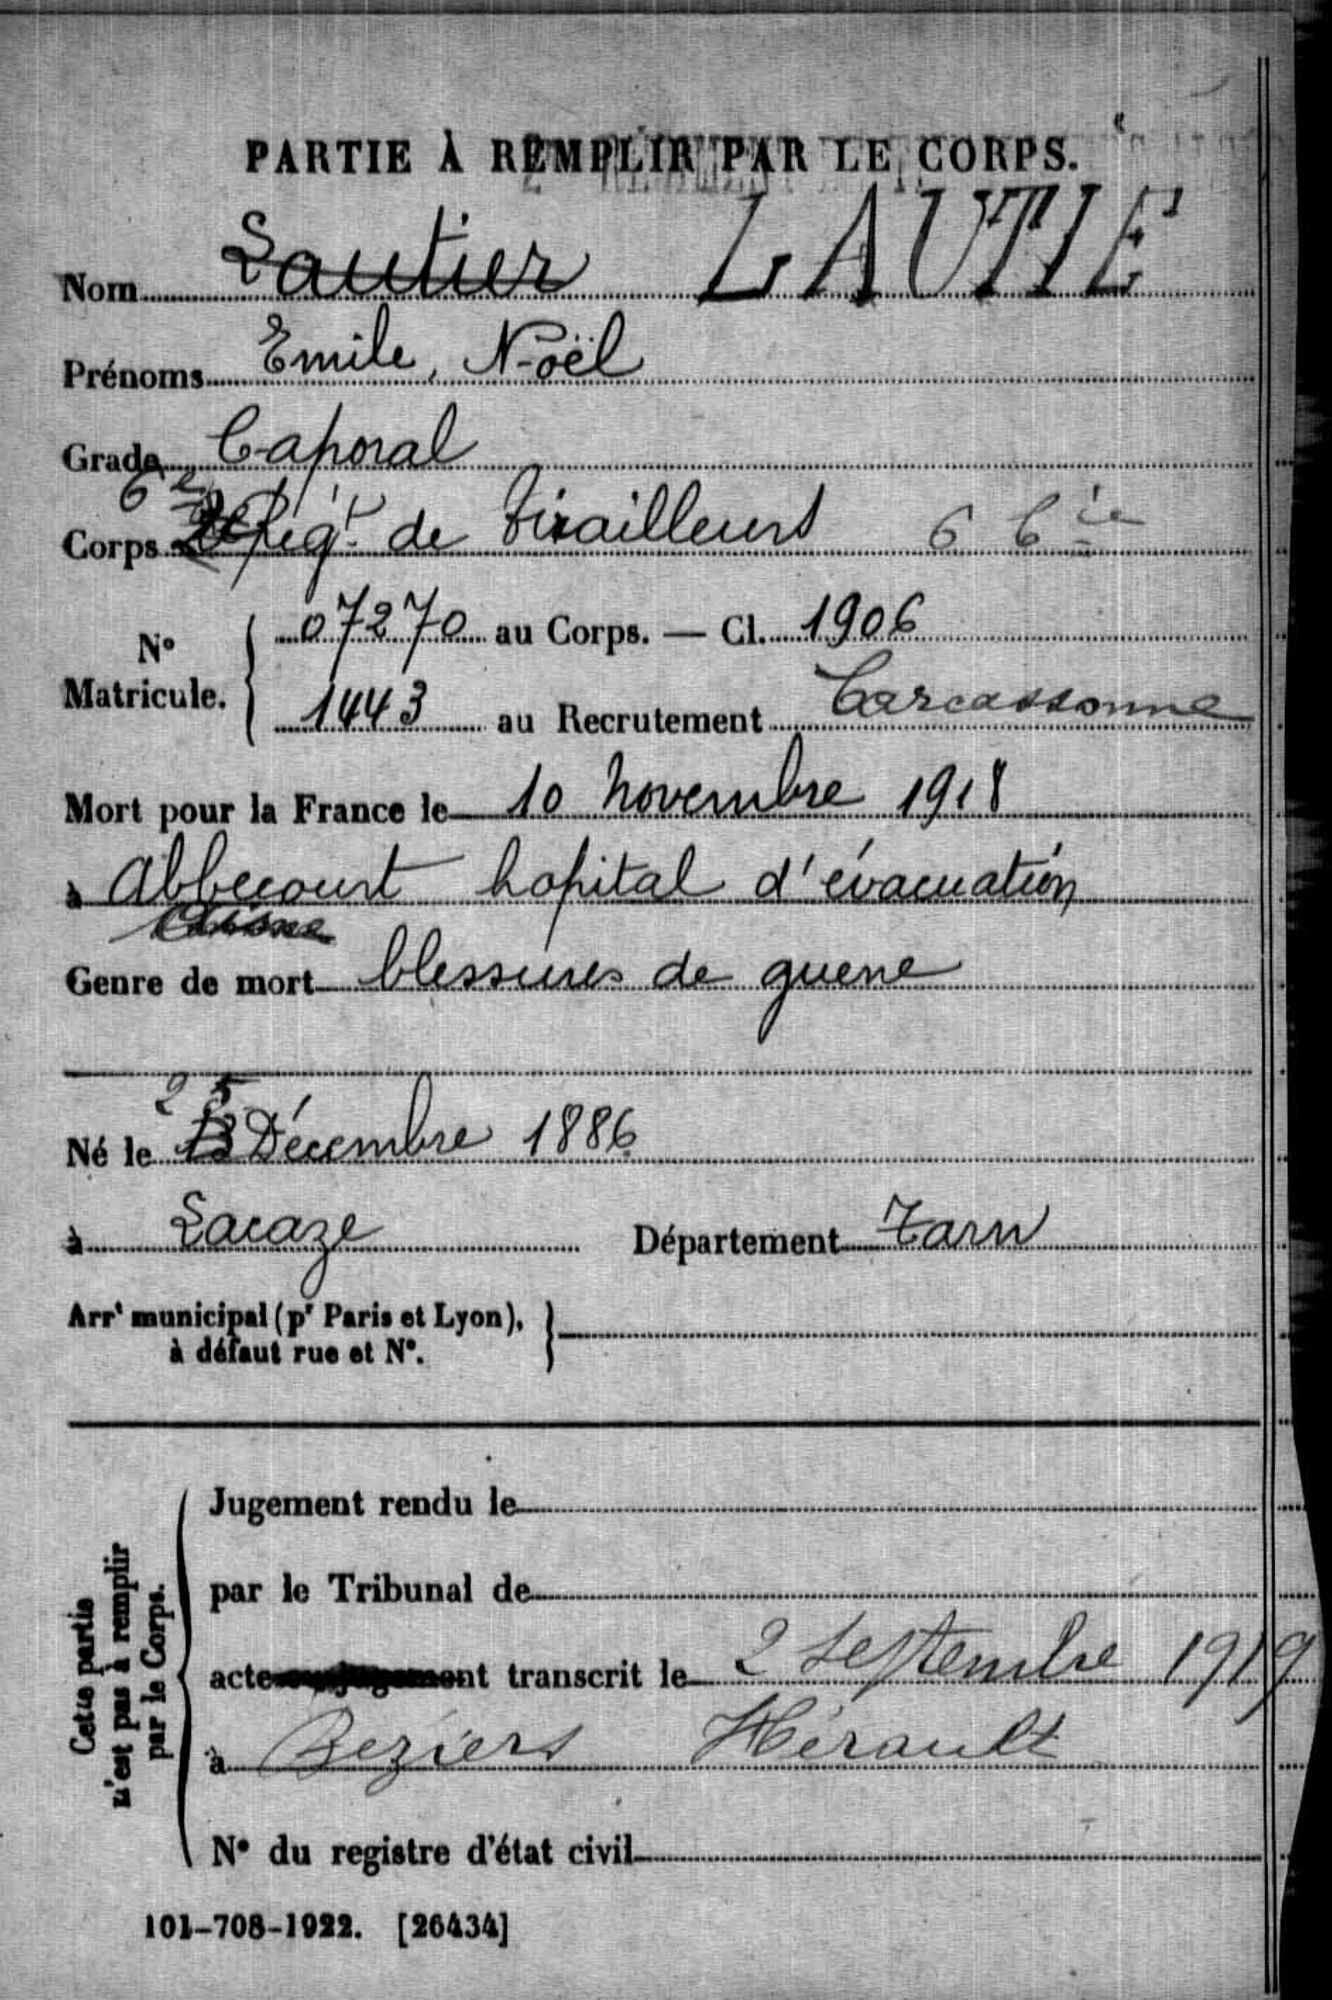 PARTIE À REMPLIR PAR LE CORPS.
Nom Lautier LAUTIE
Prénoms Emile, Noël
Grade Caporal
6e
Corps Régt de Tirailleurs 6 Cie
N° Matricule. 07270 au Corps. — Cl. 1906
1443 au Recrutement Carcassonne
Mort pour la France le 10 novembre 1918
à Abbecourt hopital d'évacuation
Aisne
Genre de mort blessures de guerre
25
Né le Décembre 1886
à Lacaze Département Tarn
Arrt municipal (pr Paris et Lyon),
à défaut rue et N°.
Cette partie
n'est pas à remplir
par le Corps.
Jugement rendu le
par le Tribunal de
acte ou jugement transcrit le 2 septembre 1919
à Beziers Hérault
N° du registre d'état civil
101-708-1922. [26434]